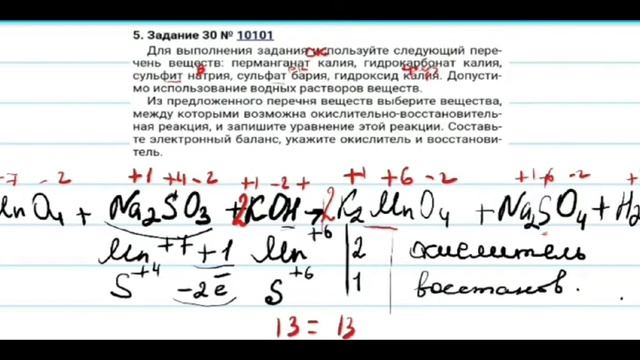 5. Задание 30 № 10101
Для выполнения задания используйте следующий пере-
чень веществ: перманганат калия, гидрокарбонат калия,
сульфит натрия, сульфат бария, гидроксид калия. Допусти-
мо использование водных растворов веществ.
Из предложенного перечня веществ выберите вещества,
между которыми возможна окислительно-восстановитель-
ная реакция, и запишите уравнение этой реакции. Составь-
те электронный баланс, укажите окислитель и восстанови-
тель.
+7 -2 +1 +4 -2 +1 -2 + +1 +6 -2 +1 +6 -2
MnO4 + Na2SO3 + 2KOH → 2K2MnO4 + Na2SO4 + H2
Mn +7 +1 Mn +6 | 2 | окислитель
S +4 -2ē S +6 | 1 | восстанов.
13 = 13